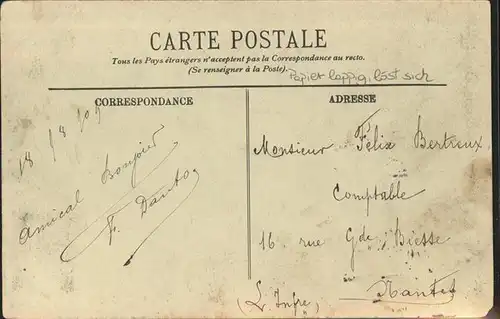 CARTE POSTALE
Tous les Pays étrangers n'acceptent pas la Correspondance au recto.
(Se renseigner à la Poste).
Papier lappig, löst sich
CORRESPONDANCE
ADRESSE
18/8/09
Amical Bonjour
F. Danto
Monsieur Félix Bertreux
Comptable
16 rue Gde Biesse
Nantes
(L. Infre)